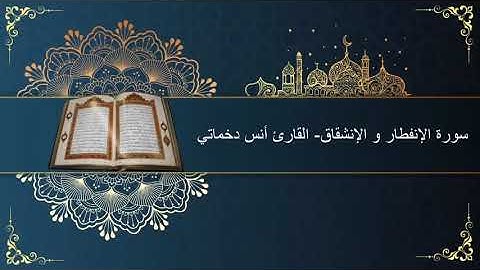 سورة الإنفطار و الإنشقاق- القارئ أنس دخماتي